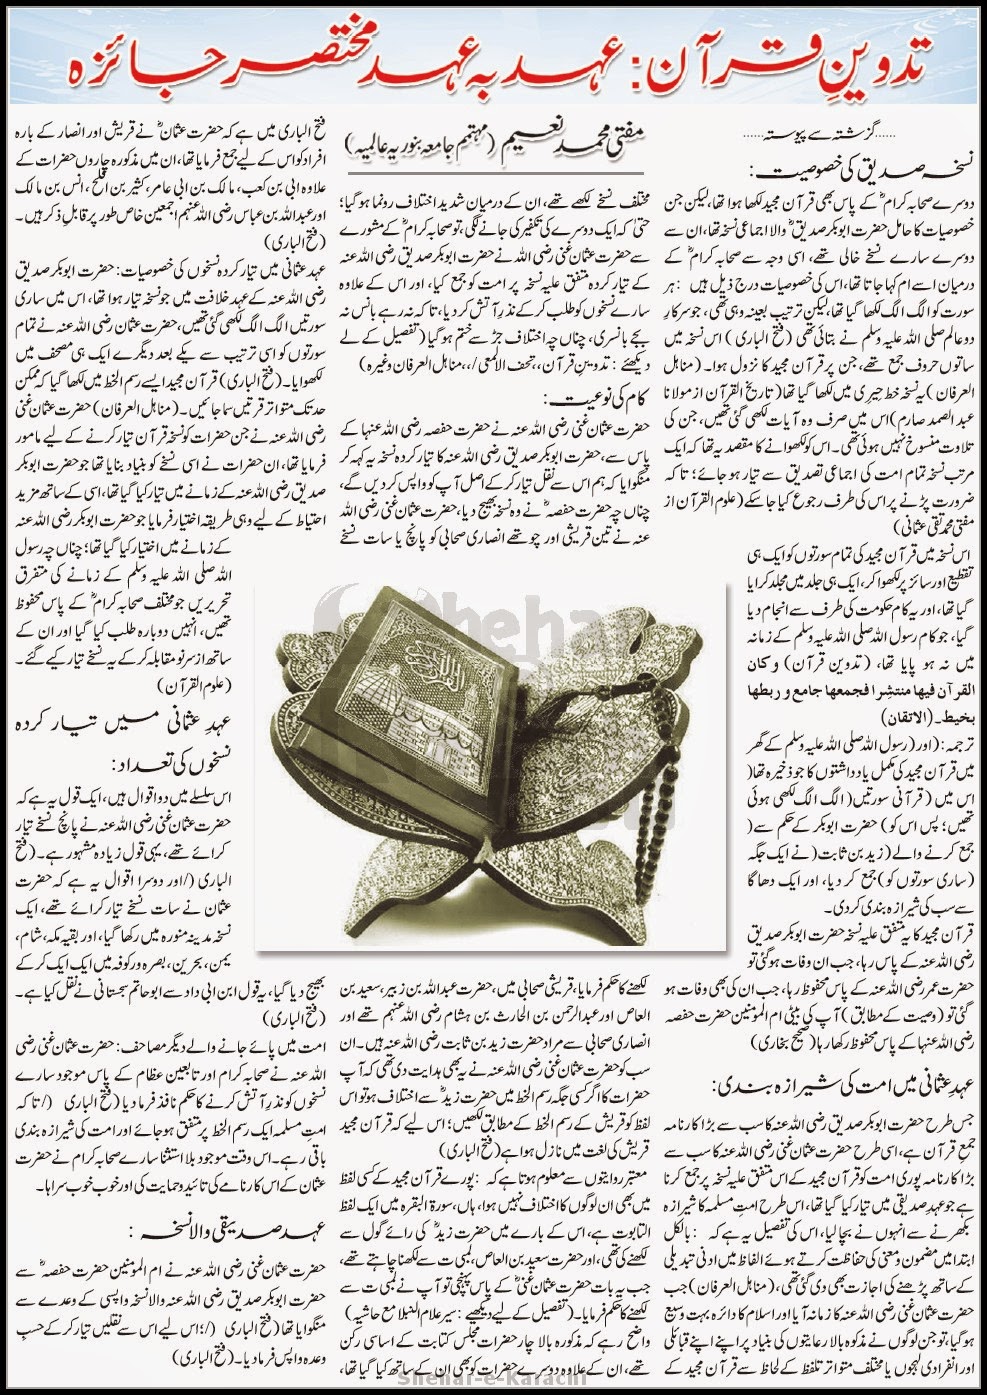 تدوینِ قرآن: عہد بہ عہد مختصر جائزہ
......گزشتہ سے پیوستہ......
مفتی محمد نعیم (مہتمم جامعہ بنوریہ عالمیہ)
نسخہ صدیق کی خصوصیت:
دوسرے صحابہ کرامؓ کے پاس بھی قرآن مجید لکھا ہوا تھا، لیکن جن
خصوصیات کا حامل حضرت ابوبکر صدیقؓ والا اجماعی نسخہ تھا، ان سے
دوسرے سارے نسخے خالی تھے، اسی وجہ سے صحابہ کرامؓ کے
درمیان اسے ام کہا جاتا تھا، اس کی خصوصیات درج ذیل ہیں: ہر
سورت کو الگ الگ لکھا گیا تھا، لیکن ترتیب بعینہ وہی تھی، جو سرکارِ
دو عالم صلی اللہ علیہ وسلم نے بتائی تھی (فتح الباری) اس نسخہ میں
ساتوں حروف جمع تھے، جن پر قرآن مجید کا نزول ہوا۔ (مناہل
العرفان) یہ نسخہ خط حیری میں لکھا گیا تھا (تاریخ القرآن از مولانا
عبدالصمد صارم) اس میں صرف وہ آیات لکھی گئی تھیں، جن کی
تلاوت منسوخ نہیں ہوئی تھی۔ اس کو لکھوانے کا مقصد یہ تھا کہ ایک
مرتب نسخہ تمام امت کی اجماعی تصدیق سے تیار ہو جائے؛ تاکہ
ضرورت پڑنے پر اس کی طرف رجوع کیا جا سکے (علوم القرآن از
مفتی محمد تقی عثمانی)
اس نسخہ میں قرآن مجید کی تمام سورتوں کو ایک ہی
تقطیع اور سائز پر لکھوا کر، ایک ہی جلد میں مجلد کرایا
گیا تھا، اور یہ کام حکومت کی طرف سے انجام دیا
گیا، جو کام رسول اللہ صلی اللہ علیہ وسلم کے زمانہ
میں نہ ہو پایا تھا، (تدوین قرآن) وکان
القرآن فیھا منتشرا فجمعھا جامع و ربطھا
بخیط۔ (الاتقان)
ترجمہ: (اور (رسول اللہ صلی اللہ علیہ وسلم کے گھر
میں قرآن مجید کی مکمل یادداشتوں کا جو ذخیرہ تھا)
اس میں (قرآنی سورتیں) الگ الگ لکھی ہوئی
تھیں؛ پس اس کو) حضرت ابوبکر کے حکم سے(
جمع کرنے والے (زید بن ثابت (نے ایک جگہ
(ساری سورتوں کو) جمع کر دیا، اور ایک دھاگا
سے سب کی شیرازہ بندی کر دی۔
قرآن مجید کا یہ متفق علیہ نسخہ حضرت ابوبکر صدیق
رضی اللہ عنہ کے پاس رہا، جب ان وفات ہو گئی تو
حضرت عمر رضی اللہ عنہ کے پاس محفوظ رہا، جب ان کی بھی وفات ہو
گئی تو (وصیت کے مطابق) آپ کی بیٹی ام المومنین حضرت حفصہ
رضی اللہ عنہا کے پاس محفوظ رکھا رہا (صحیح بخاری)
عہدِ عثمانی میں امت کی شیرازہ بندی:
جس طرح حضرت ابوبکر صدیق رضی اللہ عنہ کا سب سے بڑا کارنامہ
جمعِ قرآن ہے، اسی طرح حضرت عثمان غنی رضی اللہ عنہ کا سب سے
بڑا کارنامہ پوری امت کو قرآن مجید کے اس متفق علیہ نسخہ پر جمع کرنا
ہے جو عہدِ صدیقی میں تیار کیا گیا تھا، اس طرح امتِ مسلمہ کا شیرازہ
بکھرنے سے انہوں نے بچا لیا، اس کی تفصیل یہ ہے کہ: بالکل
ابتدا میں مضمون و معنی کی حفاظت کرتے ہوئے الفاظ میں ادنی تبدیلی
کے ساتھ پڑھنے کی اجازت بھی دی گئی تھی، (مناہل العرفان) جب
حضرت عثمان غنی رضی اللہ عنہ کا زمانہ آیا اور اسلام کا دائرہ بہت وسیع
ہو گیا، تو جن لوگوں نے مذکورہ بالا رعایتوں کی بنیاد پر اپنے اپنے قبائلی
اور انفرادی لہجوں یا مختلف متواتر تلفظ کے لحاظ سے قرآن مجید کے
مختلف نسخے لکھے تھے، ان کے درمیان شدید اختلاف رونما ہو گیا؛
حتی کہ ایک دوسرے کی تکفیر کی جانے لگی، تو صحابہ کرامؓ کے مشورے
سے حضرت عثمان غنی رضی اللہ نے حضرت ابوبکر صدیق رضی اللہ عنہ
کے تیار کردہ متفق علیہ نسخہ پر امت کو جمع کیا، اور اس کے علاوہ
سارے نسخوں کو طلب کر کے نذرِ آتش کر دیا، تاکہ نہ رہے بانس نہ
بجے بانسری، چناں چہ اختلاف جڑ سے ختم ہو گیا (تفصیل کے لے
دیکھئے: تدوینِ قرآن،، تحف الالمعی/،، مناہل العرفان وغیرہ)
کام کی نوعیت:
حضرت عثمان غنی رضی اللہ عنہ نے حضرت حفصہ رضی اللہ عنہا کے
پاس سے، حضرت ابوبکر صدیق رضی اللہ عنہ کا تیار کردہ نسخہ یہ کہہ کر
منگوایا کہ ہم اس سے نقل تیار کر کے اصل آپ کو واپس کر دیں گے،
چناں چہ حضرت حفصہؓ نے وہ نسخہ بھیج دیا، حضرت عثمان غنی رضی اللہ
عنہ نے تین قریشی اور چوتھے انصاری صحابی کو پانچ یا سات نسخے
لکھنے کا حکم فرمایا، قریشی صحابی میں، حضرت عبداللہ بن زبیر، سعید بن
العاص اور عبدالرحمن بن الحارث بن ہشام رضی اللہ عنہم تھے اور
انصاری صحابی سے مراد حضرت زید بن ثابت رضی اللہ عنہ ہیں۔ ان
سب کو حضرت عثمان غنی رضی اللہ عنہ نے یہ بھی ہدایت دی تھی کہ آپ
حضرات کا اگر کسی جگہ رسم الخط میں حضرت زیدؓ سے اختلاف ہو تو اس
لفظ کو قریش کے رسم الخط کے مطابق لکھیں؛ اس لیے کہ قرآن مجید
قریش کی لغت میں نازل ہوا ہے (فتح الباری)
معتبر روایتوں سے معلوم ہوتا ہے کہ: پورے قرآن مجید کے کسی لفظ
میں بھی ان لوگوں کا اختلاف نہیں ہوا، ہاں، سورۃ البقرہ میں ایک لفظ
التابوت ہے، اس کے بارے میں حضرت زیدؓ کی رائے گول سے
لکھنے کی تھی، اور حضرت سعید بن العاص، لمبی ت سے لکھنا چاہتے تھے،
جب یہ بات حضرت عثمان غنیؓ کے پاس پہنچی تو آپ نے لمبی ت سے
لکھنے کا حکم فرمایا۔ (تفصیل کے لیے دیکھیے: سیر علام النبلا مع حاشیہ)
واضح رہے کہ مذکورہ بالا چار حضرات مجلس کتابت کے اساسی رکن
تھے، ان کے علاوہ دوسرے حضرات کو بھی ان کے ساتھ کیا گیا تھا،
فتح الباری میں ہے کہ حضرت عثمانؓ نے قریش اور انصار کے بارہ
افراد کو اس کے لیے جمع فرمایا تھا، ان میں مذکورہ چاروں حضرات کے
علاوہ ابی بن کعب، مالک بن ابی عامر، کثیر بن افلح، انس بن مالک
اور عبداللہ بن عباس رضی اللہ عنہم اجمعین خاص طور پر قابلِ ذکر ہیں۔
(فتح الباری)
عہدِ عثمانی میں تیار کردہ نسخوں کی خصوصیات: حضرت ابوبکر صدیق
رضی اللہ عنہ کے عہدِ خلافت میں جو نسخہ تیار ہوا تھا، اس میں ساری
سورتیں الگ الگ لکھی گئی تھیں، حضرت عثمان رضی اللہ عنہ نے تمام
سورتوں کو اسی ترتیب سے یکے بعد دیگرے ایک ہی مصحف میں
لکھوایا۔ (فتح الباری) قرآن مجید ایسے رسم الخط میں لکھا گیا کہ ممکن
حد تک متواتر قرتیں سما جائیں۔ (مناہل العرفان) حضرت عثمان غنی
رضی اللہ عنہ نے جن حضرات کو نسخہ قرآن تیار کرنے کے لیے مامور
فرمایا تھا، ان حضرات نے اسی نسخے کو بنیاد بنایا تھا جو حضرت ابوبکر
صدیق رضی اللہ عنہ کے زمانے میں تیار کیا گیا تھا، اسی کے ساتھ مزید
احتیاط کے لیے وہی طریقہ اختیار فرمایا جو حضرت ابوبکر رضی اللہ عنہ
کے زمانے میں اختیار کیا گیا تھا؛ چناں چہ رسول
اللہ صلی اللہ علیہ وسلم کے زمانے کی متفرق
تحریریں جو مختلف صحابہ کرامؓ کے پاس محفوظ
تھیں، انہیں دوبارہ طلب کیا گیا اور ان کے
ساتھ از سرِ نو مقابلہ کر کے یہ نسخے تیار کیے گئے۔
(علوم القرآن)
عہدِ عثمانی میں تیار کردہ
نسخوں کی تعداد:
اس سلسلے میں دو اقوال ہیں، ایک قول یہ ہے کہ
حضرت عثمان غنی رضی اللہ عنہ نے پانچ نسخے تیار
کرائے تھے، یہی قول زیادہ مشہور ہے۔ (فتح
الباری (/اور دوسرا اقوال یہ ہے کہ حضرت
عثمان نے سات نسخے تیار کرائے تھے، ایک
نسخہ مدینہ منورہ میں رکھا گیا، اور بقیہ مکہ، شام،
یمن، بحرین، بصرہ ور کوفہ میں ایک ایک کر کے
بھیج دیا گیا، یہ قول ابن ابی داد سے ابو حاتم سجستانی نے نقل کیا ہے۔
(فتح الباری)
امت میں پائے جانے والے دیگر مصاحف: حضرت عثمان غنی رضی
اللہ عنہ نے صحابہ کرام اور تابعین عظام کے پاس موجود سارے
نسخوں کو نذرِ آتش کرنے کا حکم نافذ فرما دیا (فتح الباری (/تاکہ
امتِ مسلمہ ایک رسم الخط پر متفق ہو جائے اور امت کی شیرازہ بندی
باقی رہے۔ اس وقت موجود بلا استثنا سارے صحابہ کرام نے حضرت
عثمان کے اس کارنامے کی تائید و حمایت کی اور خوب خوب سراہا۔
عہد صدیقی والا نسخہ:
حضرت عثمان غنی رضی اللہ عنہ نے ام المومنین حضرت حفصہؓ سے
حضرت ابوبکر صدیق رضی اللہ عنہ والا نسخہ واپسی کے وعدے سے
منگوایا تھا (فتح الباری (/؛ اس لیے اس سے نقلیں تیار کر کے حسبِ
وعدہ واپس فرما دیا۔ (فتح الباری)
Shehar-e-Karachi